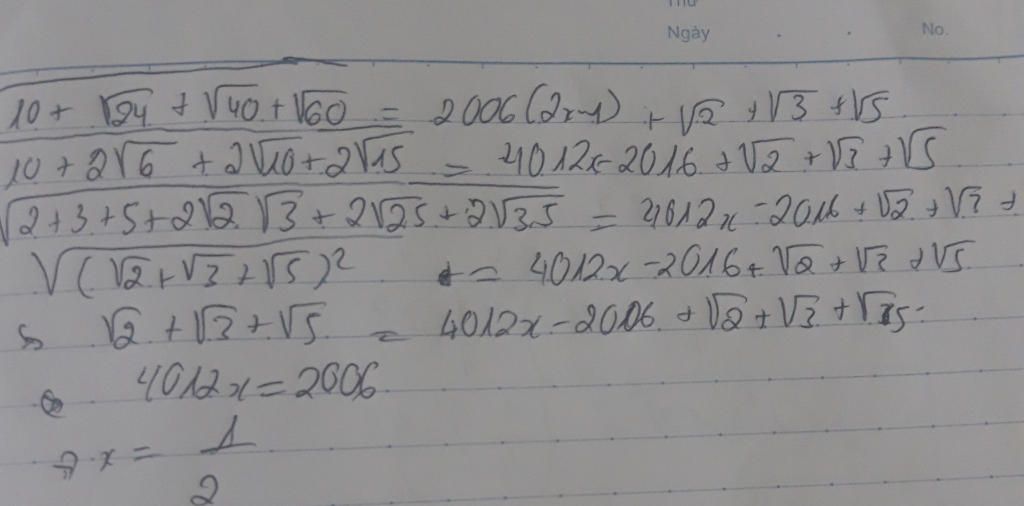 Thứ
Ngày
No.
√10 + √24 + √40 + √60 = 2006(2x-1) + √2 + √3 + √5
√10 + 2√6 + 2√10 + 2√15 = 4012x - 2016 + √2 + √3 + √5
√2 + 3 + 5 + 2√2 √3 + 2√2 5 + 2√3.5 = 4012x - 2016 + √2 + √3 +
√(√2 + √3 + √5)² = 4012x - 2016 + √2 + √3 + √5
√2 + √3 + √5 = 4012x - 2006 + √2 + √3 + √5
4012x = 2006
⇒ x = 1
2